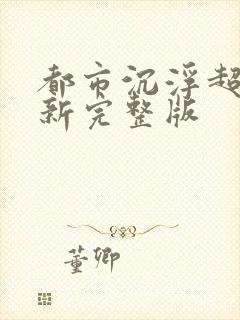 都市沉浮超
新完整版
董卿